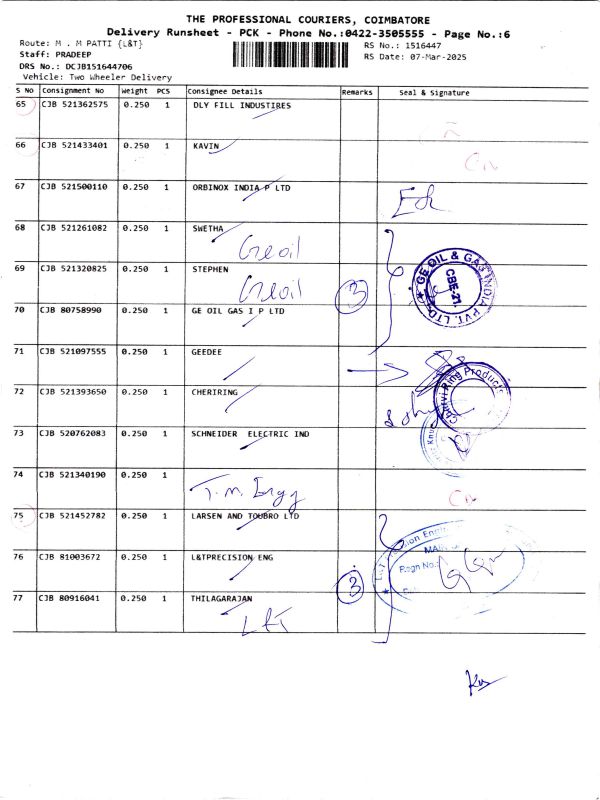 THE PROFESSIONAL COURIERS, COIMBATORE
Delivery Runsheet - PCK - Phone No.:0422-3505555 - Page No.:6
Route: M . M PATTI {L&T}
RS No.: 1516447
Staff: PRADEEP
RS Date: 07-Mar-2025
DRS No.: DCJB151644706
Vehicle: Two Wheeler Delivery
S No Consignment No Weight PCS Consignee Details Remarks Seal & Signature
65 CJB 521362575 0.250 1 DLY FILL INDUSTIRES
66 CJB 521433401 0.250 1 KAVIN
67 CJB 521500110 0.250 1 ORBINOX INDIA P LTD
68 CJB 521261082 0.250 1 SWETHA
Ge oil
69 CJB 521320825 0.250 1 STEPHEN
Ge oil
3
GE OIL & GAS INDIA PVT. LTD.
CBE-21
70 CJB 80758990 0.250 1 GE OIL GAS I P LTD
71 CJB 521097555 0.250 1 GEEDEE
72 CJB 521393650 0.250 1 CHERIRING
Ring Products
73 CJB 520762083 0.250 1 SCHNEIDER ELECTRIC IND
74 CJB 521340190 0.250 1
T.M. Engg
75 CJB 521452782 0.250 1 LARSEN AND TOUBRO LTD
76 CJB 81003672 0.250 1 L&TPRECISION ENG
3
Regn No.:
77 CJB 80916041 0.250 1 THILAGARAJAN
L&T